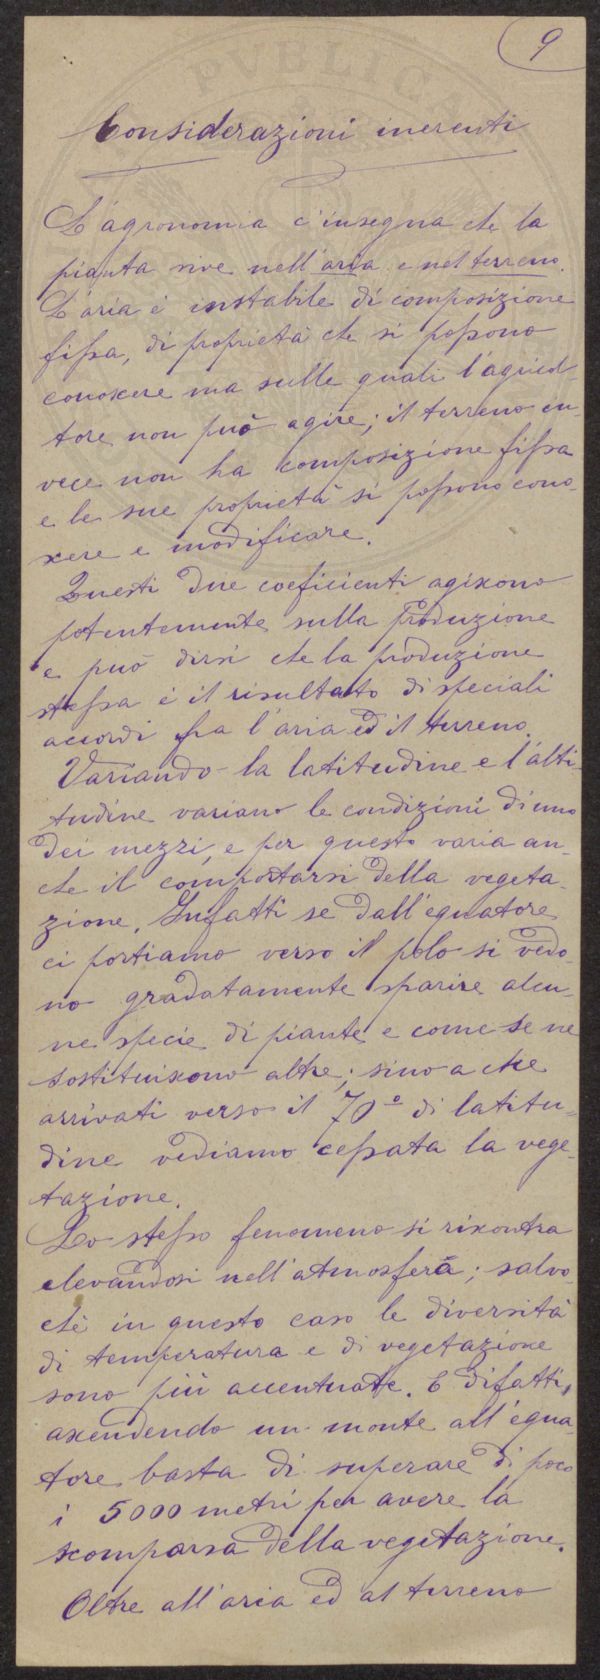 9
Considerazioni inerenti
L'agronomia c'insegna che la
pianta vive nell'aria e nel terreno.
L'aria è instabile di composizione
fissa, di proprietà che si possono
conoscere ma sulle quali l'agricol-
tore non può agire; il terreno in-
vece non ha composizione fissa
e le sue proprietà si possono cono-
scere e modificare.
Questi due coeficienti agiscono
potentemente sulla produzione
e può dirsi che la produzione
stessa è il risultato di speciali
accordi fra l'aria ed il terreno.
Variando la latitudine e l'alti-
tudine variano le condizioni di uno
dei mezzi, e per questo varia an-
che il comportarsi della vegeta-
zione. Infatti se dall'equatore
ci portiamo verso il polo si vedo-
no gradatamente sparire alcu-
ne specie di piante e come se ne
sostituiscono altre; sino a che
arrivati verso il 70° di latitu-
dine vediamo cessata la vege-
tazione.
Lo stesso fenomeno si riscontra
elevandosi nell'atmosfera; salvo-
chè in questo caso le diversità
di temperatura e di vegetazione
sono più accentuate. E difatti,
ascendendo un monte all'equa-
tore basta di superare di poco
i 5000 metri per avere la
scomparsa della vegetazione.
Oltre all'aria ed al terreno
PVBLICA